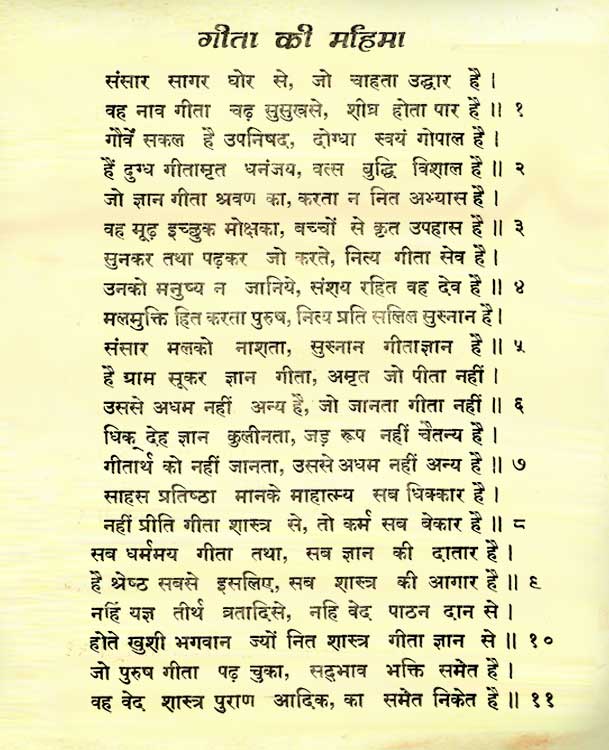 गीता की महिमा
संसार सागर घोर से, जो चाहता उद्धार है ।
वह नाव गीता चढ़ सुसुखसे, शीघ्र होता पार है ॥ १
गौवें सकल है उपनिषद, दोग्धा स्वयं गोपाल है ।
हैं दुग्ध गीतामृत धनंजय, वत्स बुद्धि विशाल है ॥ २
जो ज्ञान गीता श्रवण का, करता न नित अभ्यास है ।
वह मूढ़ इच्छुक मोक्षका, बच्चों से कृत उपहास है ॥ ३
सुनकर तथा पढ़कर जो करते, नित्य गीता सेव है ।
उनको मनुष्य न जानिये, संशय रहित वह देव है ॥ ४
मलमुक्ति हित करता पुरुष, नित्य प्रति सलिल सुस्नान है ।
संसार मलको नाशता, सुस्नान गीताज्ञान है ॥ ५
है ग्राम सूकर ज्ञान गीता, अमृत जो पीता नहीं ।
उससे अधम नहीं अन्य है, जो जानता गीता नहीं ॥ ६
धिक् देह ज्ञान कुलीनता, जड़ रूप नहीं चैतन्य है ।
गीतार्थ को नहीं जानता, उससे अधम नहीं अन्य है ॥ ७
साहस प्रतिष्ठा मानके माहात्म्य सब धिक्कार है ।
नहीं प्रीति गीता शास्त्र से, तो कर्म सब बेकार है ॥ ८
सब धर्ममय गीता तथा, सब ज्ञान की दातार है ।
है श्रेष्ठ सबसे इसलिए, सब शास्त्र की आगार है ॥ ९
नहिं यज्ञ तीर्थ व्रतादिसे, नहि वेद पाठन दान से ।
होते खुशी भगवान ज्यों नित शास्त्र गीता ज्ञान से ॥ १०
जो पुरुष गीता पढ़ चुका, सद्भाव भक्ति समेत है ।
वह वेद शास्त्र पुराण आदिक, का समेत निकेत है ॥ ११